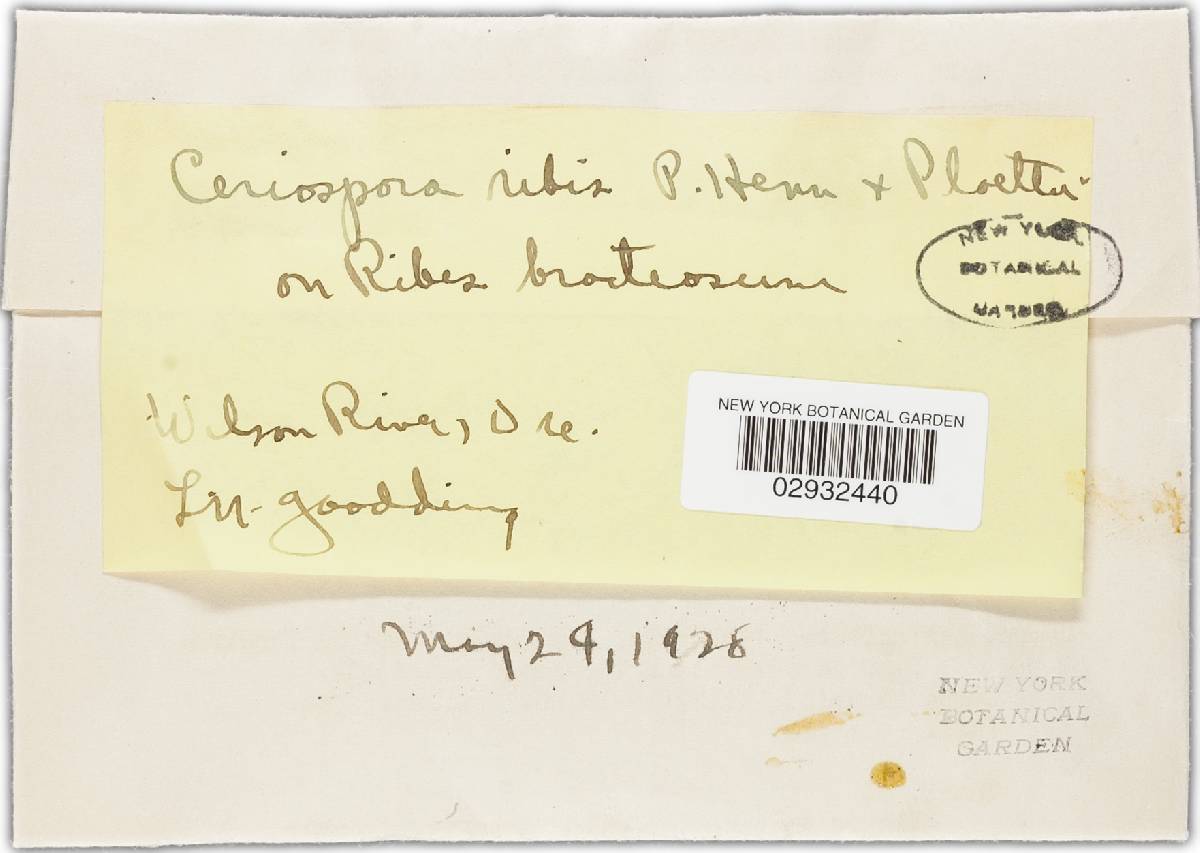 Ceriospora ribis P. Henn + Ploettn.
on Ribes bracteosum
NEW YORK
BOTANICAL
GARDEN
Wilson River, Ore.
L.N. Goodding
NEW YORK BOTANICAL GARDEN
02932440
May 24, 1928
NEW YORK
BOTANICAL
GARDEN